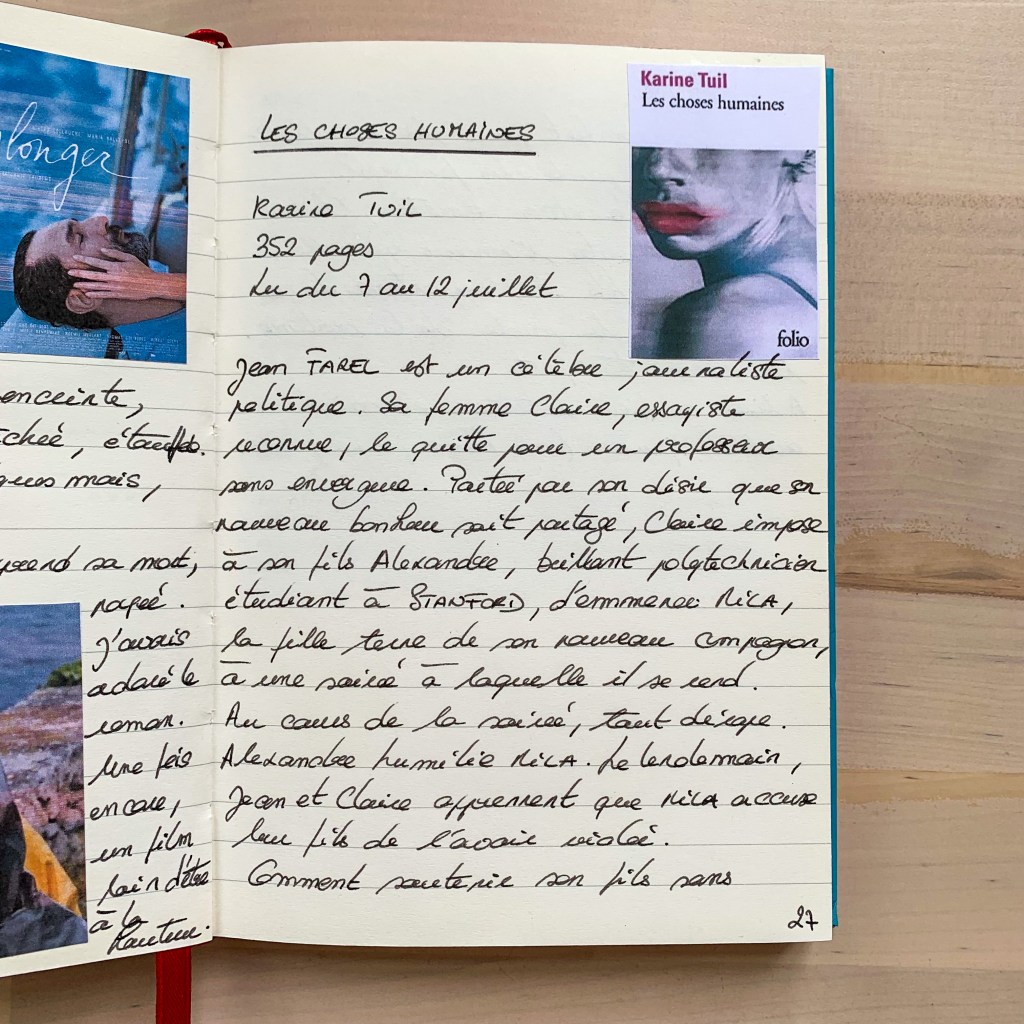 longer
enceinte,
mais,
sa mort,
j'avais
adoré le
roman.
Une fois
encore,
un film
loin d'être
à la
hauteur.
LES CHOSES HUMAINES
Karine Tuil
352 pages
Lu du 7 au 12 juillet
Karine Tuil
Les choses humaines
folio
Jean FAREL est un célèbre journaliste
politique. Sa femme Claire, essayiste
reconnue, le quitte pour un professeur
sans envergure. Portée par son désir que son
nouveau bonheur soit partagé, Claire impose
à son fils Alexandre, brillant polytechnicien
étudiant à STANFORD, d'emmener MILA,
la fille terne de son nouveau compagnon,
à une soirée à laquelle il se rend.
Au cours de la soirée, tout dérape.
Alexandre humilie MILA. Le lendemain,
Jean et Claire apprennent que MILA accuse
leur fils de l'avoir violée.
Comment soutenir son fils sans
27